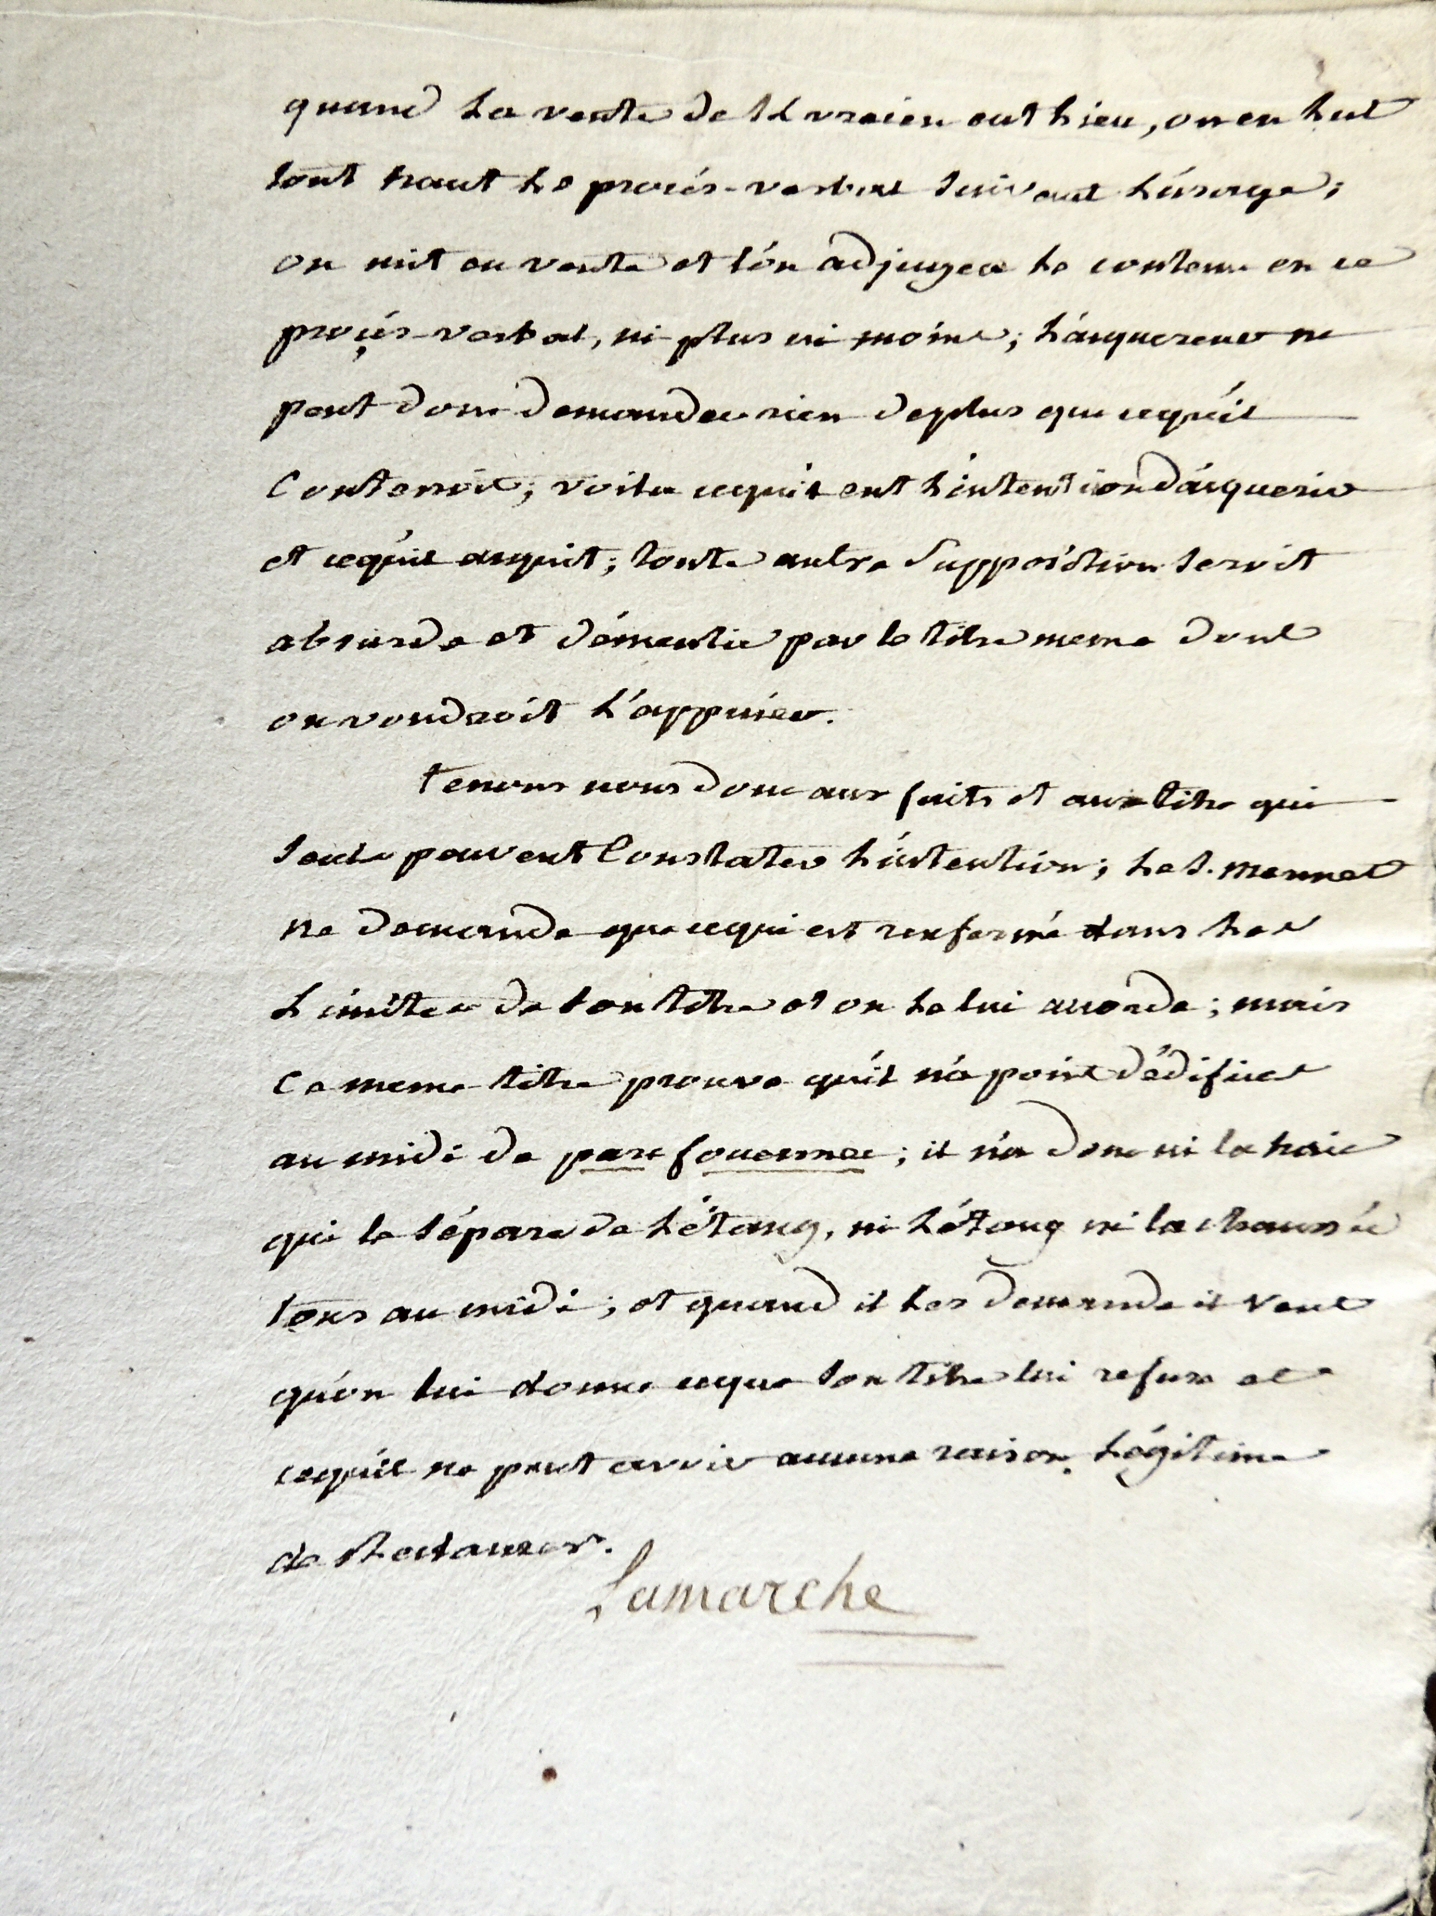 quand la vente de Kvraien eut lieu, on en lut
tout haut le procès-verbal suivant l'usage;
on mit en vente et l'on adjugea le contenu en ce
procès-verbal, ni plus ni moins; l'acquereur ne
peut donc demander rien de plus que ce qu'il
Contenoit; voila ce qu'il eut l'intention d'acquerir
et ce qu'il acquit; toute autre Supposition seroit
absurde et démentie par le titre meme dont
on voudroit l'appuier.
tenons nous donc aux faits et aux titre qui
seuls peuvent Constater l'intention; le s. mennet
ne demande que ce qui est renfermé dans les
Limites de son titre et on le lui accorde; mais
Ce meme titre prouve qu'il n'a point d'édifices
au midi de parc fouennec; il n'a donc ni la haie
qui le sépare de l'étang, ni l'étang ni la chaussée
tous au midi; et quand il les demande il veut
qu'on lui donne ce que son titre lui refuse et
ce qu'il ne peut avoir aucune raison légitime
de Reclamer.
Lamarche